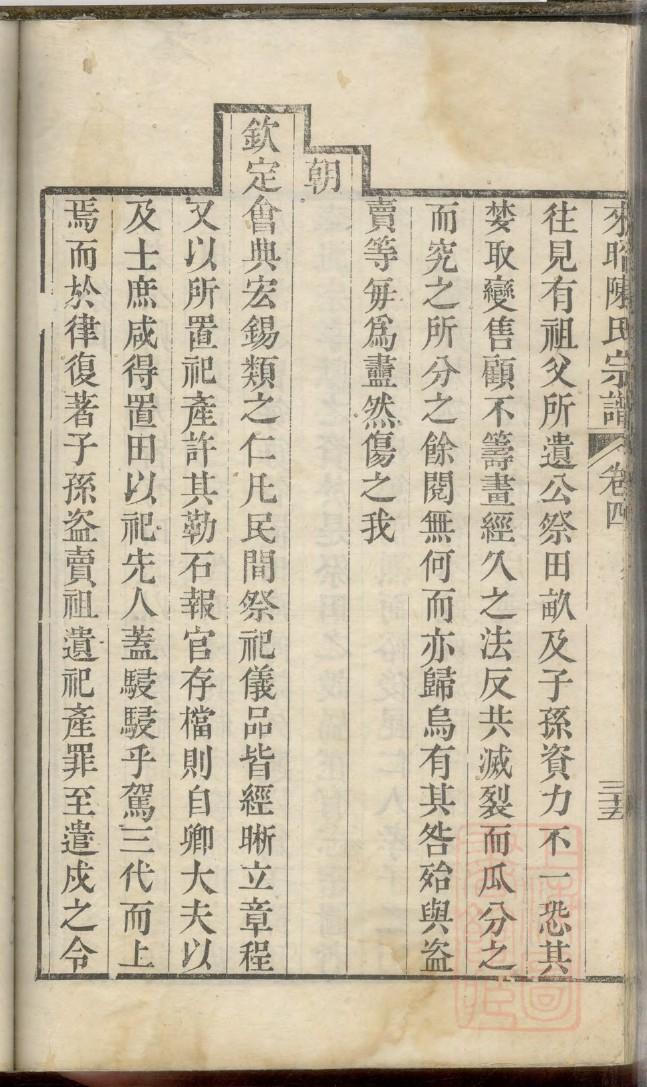 陳氏宗譜 卷四
三十五
往見有祖父所遺公祭田畝及子孫資力不一恐其
婪取變售顧不籌畫經久之法反共滅裂而瓜分之
而究之所分之餘閱無何而亦歸烏有其咎殆與盜
賣等每爲衋然傷之我
朝
欽定會典宏錫類之仁凡民間祭祀儀品皆經晰立章程
又以所置祀產許其勒石報官存檔則自卿大夫以
及士庶咸得置田以祀先人蓋駸駸乎駕三代而上
焉而於律復著子孫盜賣祖遺祀產罪至遣戍之令